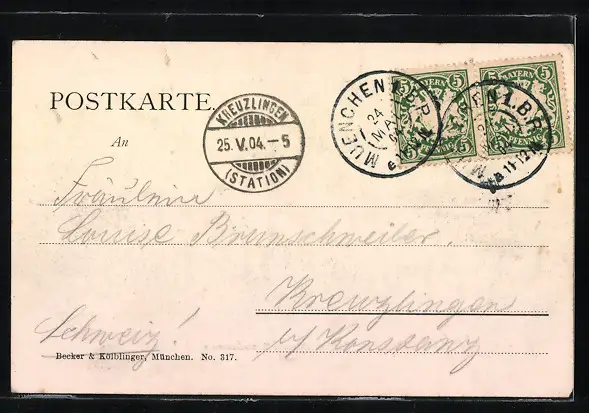 POSTKARTE.
An
KREUZLINGEN
25. V. 04. – 5
(STATION)
MUENCHEN 2 B.P.
24
MAI
5 BAYERN 5
5 5
5 BAYERN 5
5
2.B.P.
11-12
Fräulein
Louise Brunschweiler.
Kreuzlingen
b/ Konstanz
Schweiz!
Becker & Kölblinger, München. No. 317.